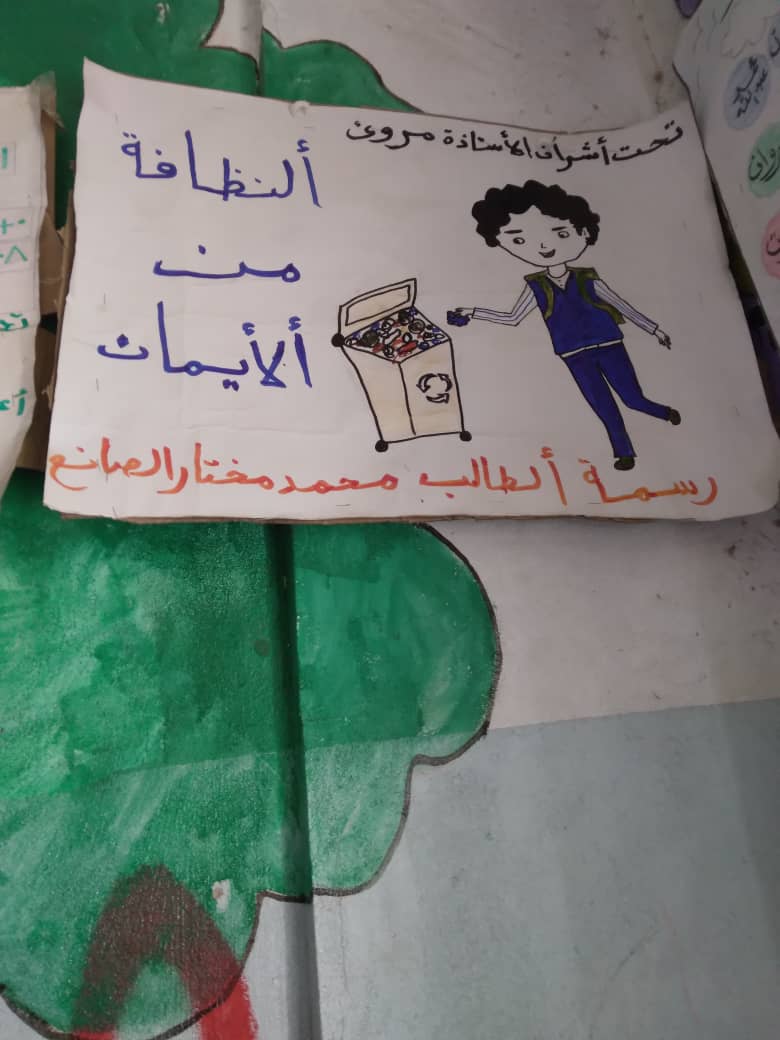 تحت أشراف الأستاذة مروى
ألنظافة
من
ألأيمان
رسمة ألطالب محمد مختار الصانع